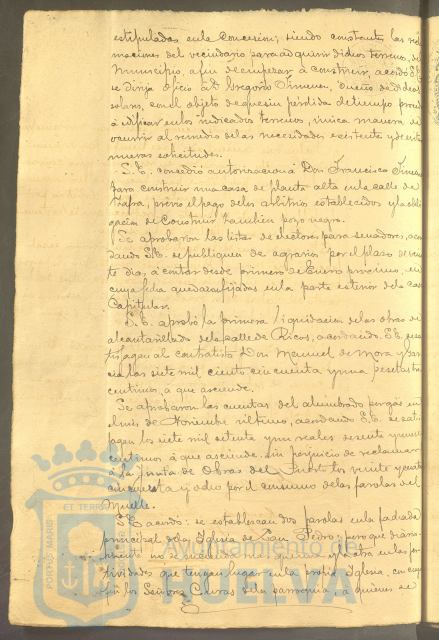 estipuladas en la concesion; siendo constantes las recla
maciones del vecindario para adquirir dichos terrenos, del
Municipio, a fin de empezar á construir, acordó S.E.
se dirija oficio á D. Gregorio Jimenez, dueño de
solares, con el objeto de que sin pérdida de tiempo proceda
á edificar en los indicados terrenos, unica manera de
ocurrir al remedio de las necesidades existentes y de evitar
nuevas solicitudes.
S. E. concedió autorizacion á Don Francisco Jimenez
para construir una casa de planta alta en la calle de
Zafra, previo el pago de los arbitrios establecidos y la obli
gacion de construir tambien pozo negro.
Se aprobaron las listas de electores para senadores, acor
dando S.E. se publiquen de agrarios por el plazo de vein
te dias, á contar desde primero de Enero proximo, en
cuya fecha quedaran fijadas en la parte exterior de la casa
Capitular.
S. E. aprobó la primera liquidacion de las obras de
alcantarillado de la calle de Ricos, acordando S.E.
al contratista Don Manuel de Mora y
las siete mil ciento cincuenta y una pesetas
centimos á que asciende.
Se aprobaron las cuentas del alumbrado por gas en
el mes de Noviembre ultimo, acordando S.E. se satis
fagan los siete mil setenta y un reales sesenta y
centimos á que asciende, sin perjuicio de reclamar
á la Junta de Obras del Puerto los veinte y
cincuenta y ocho por el consumo de las farolas del
Muelle.
S.E. acordó: se establezcan dos farolas en la fachada
principal de la Iglesia de San Pedro; pero que
no se encienda y la otra en las fes
tividades que tengan lugar en la Iglesia,
por los Señores Curas de la parroquia, á quienes se
PORTUS MARIS ET TERRAE
Ayuntamiento de
HUELVA